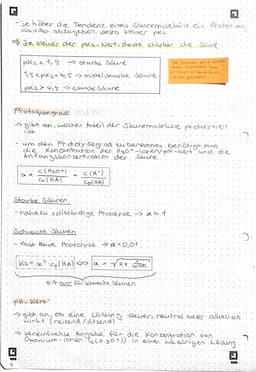 - je höher die Tendenz eines Säuremoleküls ein Proton an
Wasser abzugeben desto kleiner pKs
⇒ Je kleiner der pKs-Wert desto stärker die Säure
pKs < 1,5 → starke Säure
1,5 < pKs < 4,5 → mittelstarke Säure
pKs > 4,5 → schwache Säure
Protolysegrad
→ gibt an, welcher Anteil der Säuremoleküle protolysiert
ist
- um den Protolysegrad zu berechnen benötigt man
die Konzentration der H₃O⁺-Ionen/pH-Wert und die
Anfangskonzentration der Säure
α = c(H₃O⁺) / c₀(HA) = c(A⁻) / c₀(HA)
Starke Säuren
- nahezu vollständige Protolyse → α ≈ 1
Schwache Säuren
- fast keine Protolyse → α <0,01
Ks = α² · c₀(HA) ⇔ α =
nur für schwache Säuren
pH-Wert
→ gibt an, ob eine Lösung sauer, neutral oder alkalisch
wirkt (reizend/ätzend)
→ vereinfachte Angabe für die Konzentration von
Oxonium-Ionen (c(H₃O⁺)) in einer wässrigen Lösung